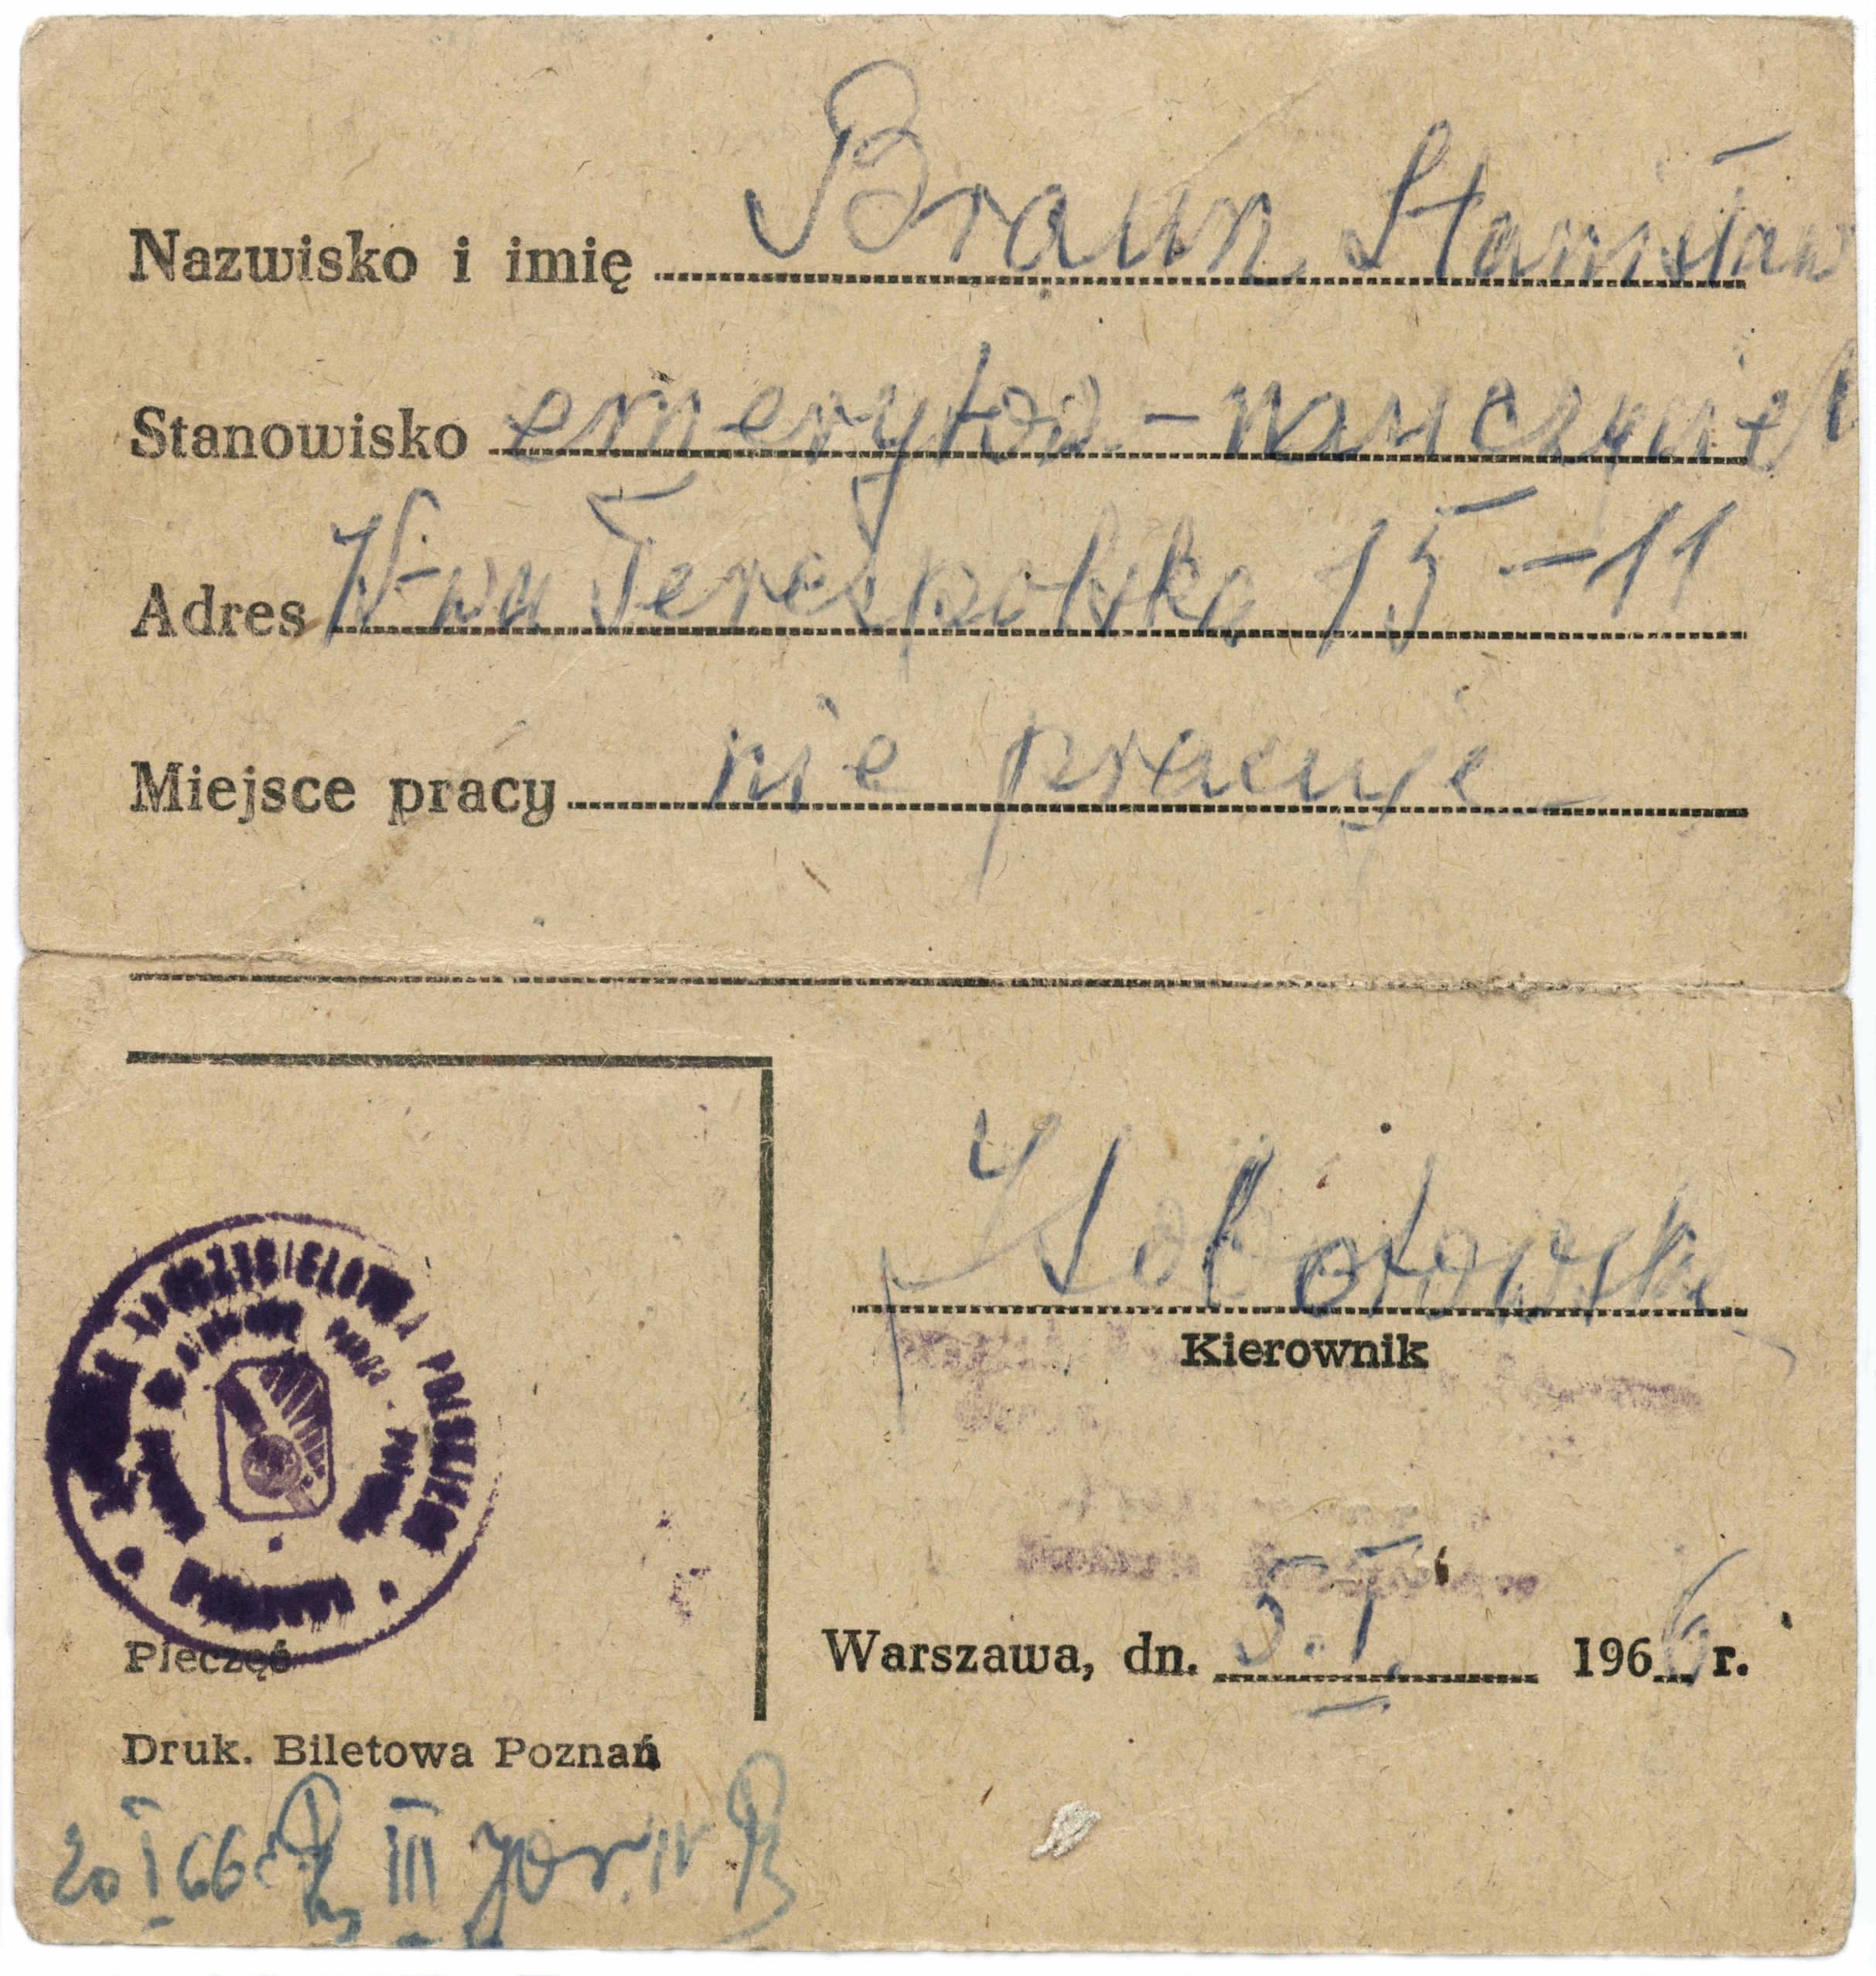 Nazwisko i imię Braun Stanisław
Stanowisko emeryt - nauczyciel
Adres W-wa Terespolska 15-11
Miejsce pracy nie pracuje
NAUCZYCIELSTWA POLSKIEGO
Pieczęć
Kierownik
Warszawa, dn. 5.I. 1966 r.
Druk. Biletowa Poznań
20 I 66 III